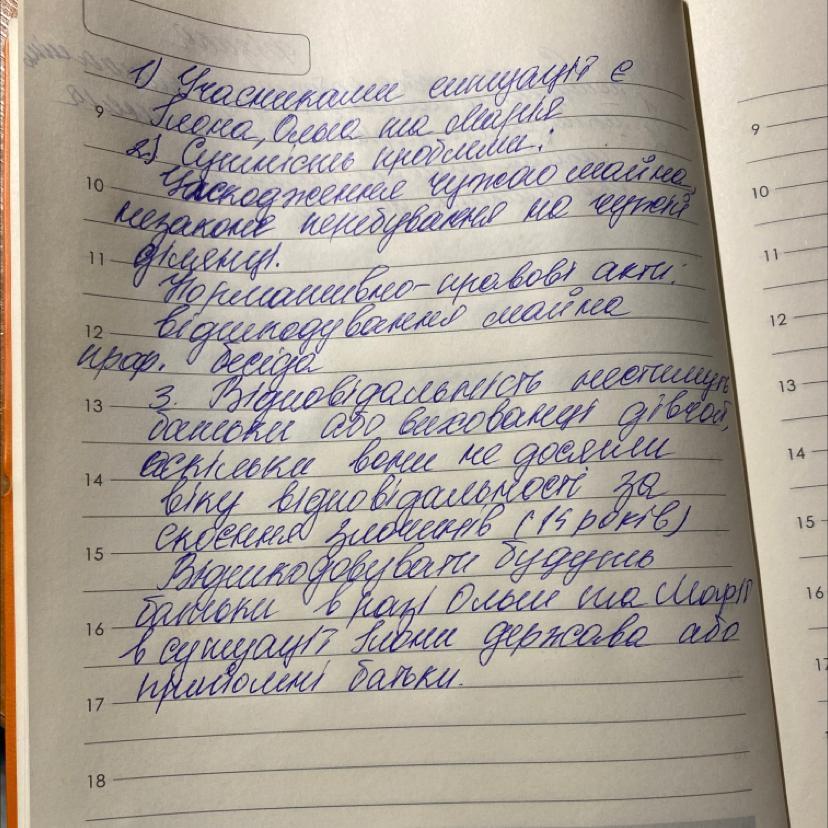 1) Учасниками ситуації є
Ілона, Ольга та Марія
2) Сутність проблеми:
Ушкодження чужого майна,
незаконе перебування на чужій
ділянці.
Нормативно-правові акти:
відшкодування майна
проф. бесіда
3. Відповідальність нестимуть
батьки або вихованці дівчат,
оскільки вони не досягли
віку відповідальності за
скоєння злочинів (14 років)
Відшкодовувати будуть
батьки в разі Ольги та Марії
в ситуації Ілони держава або
прийомні батьки.
9
10
11
12
13
14
15
16
17
18
9
10
11
12
13
14
15
16